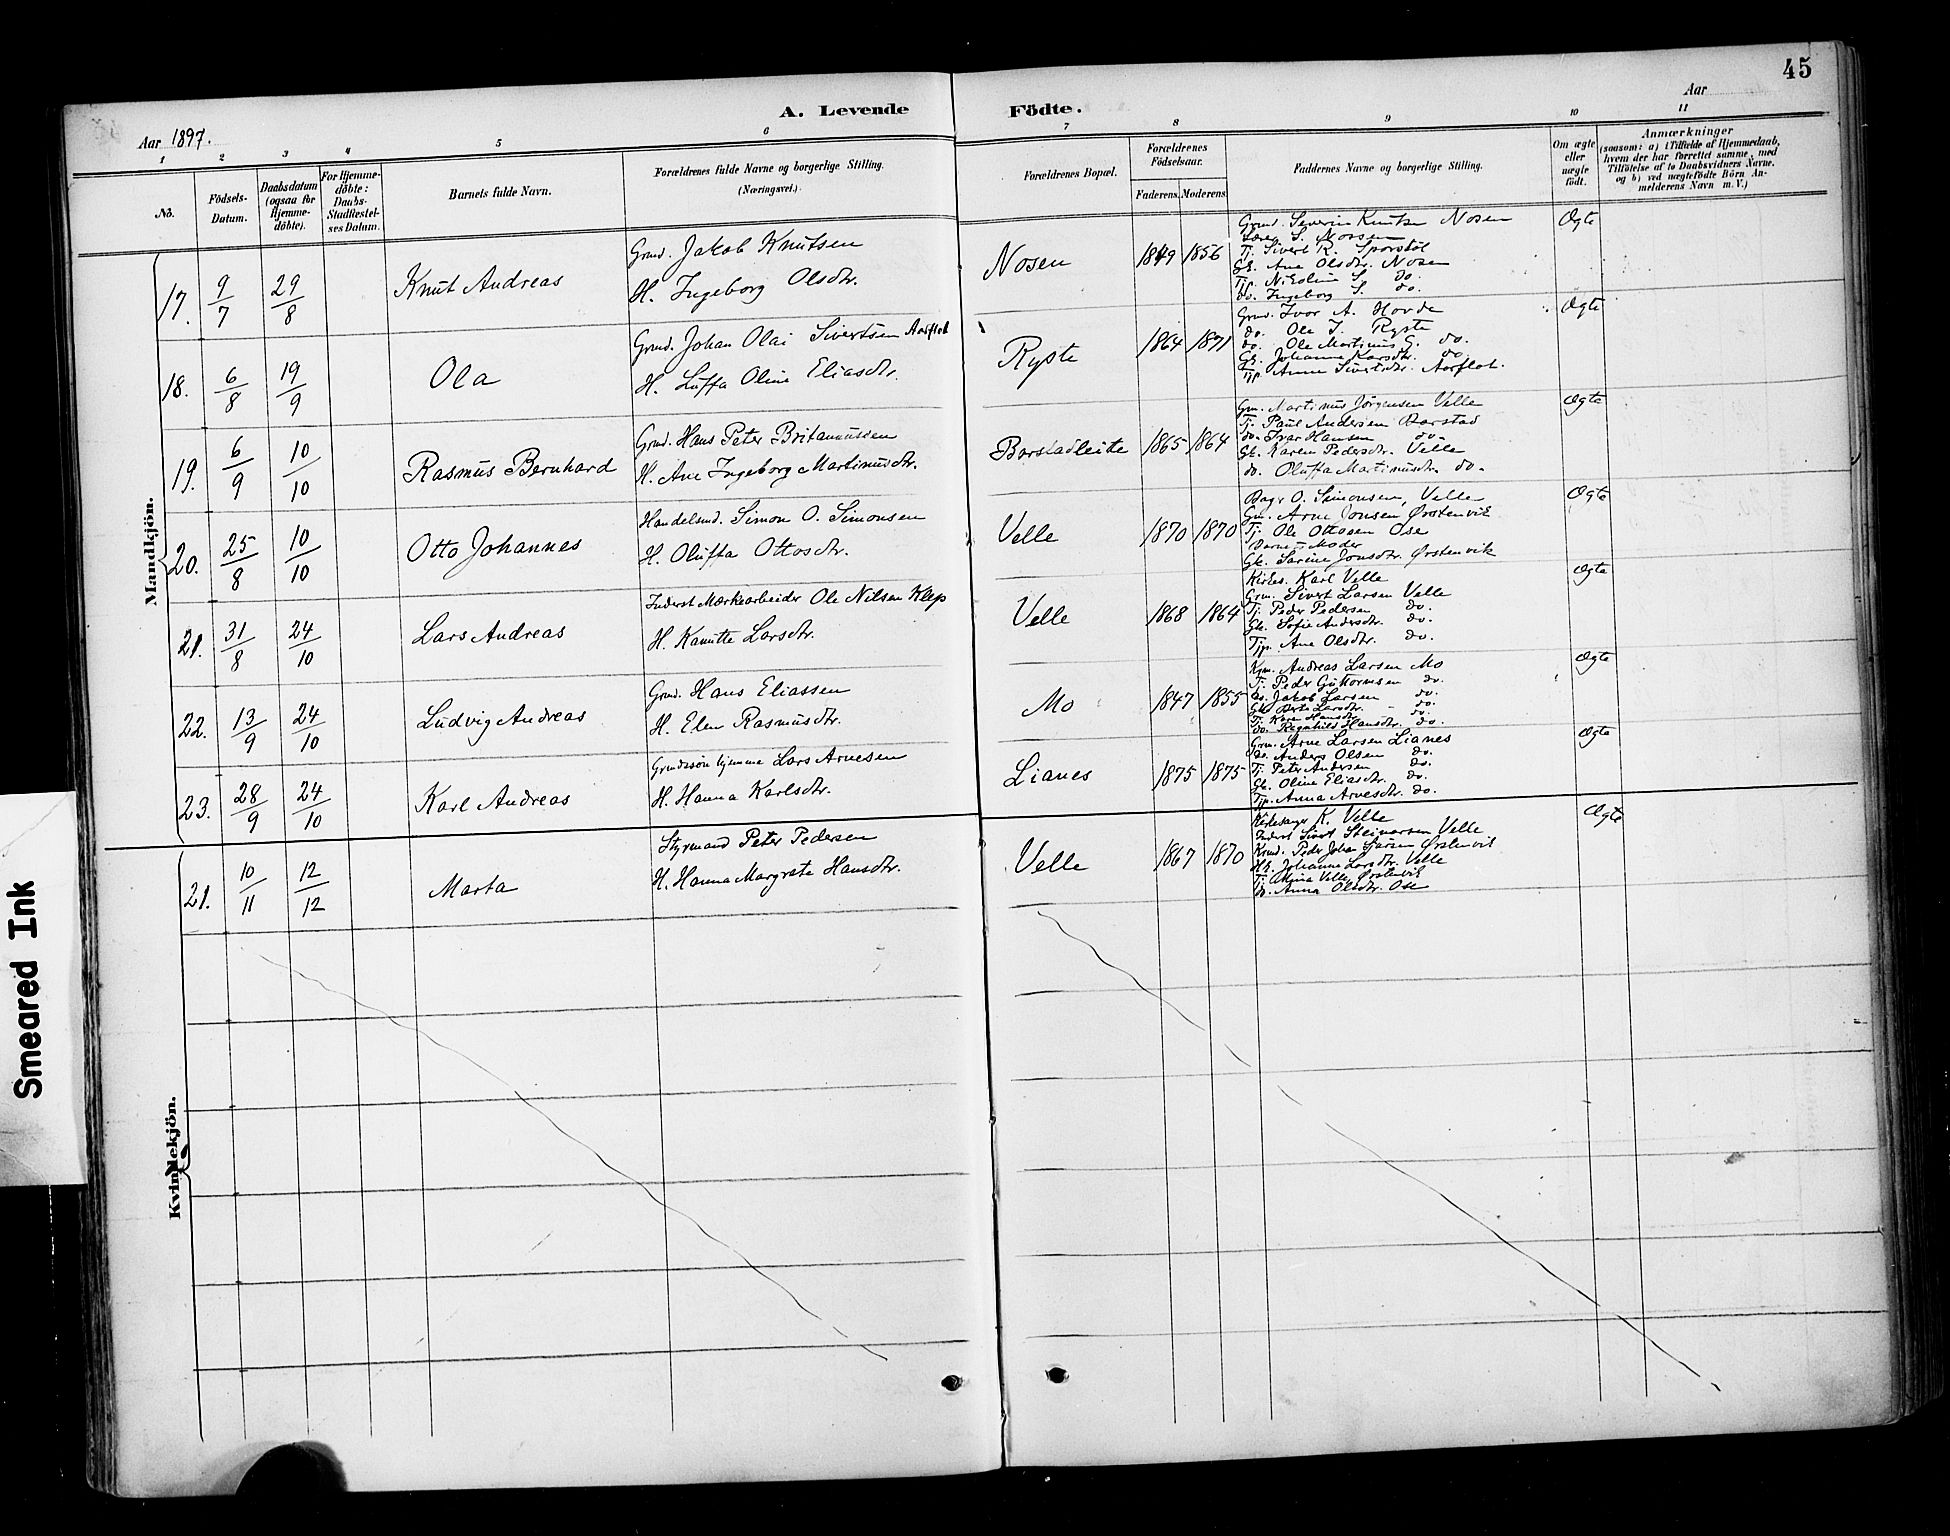 45
A. Levende Födte.
Aar 1897.
Aar
1 2 3 4 5 6 7 8 9 10 11
No.
Födsels-
Datum.
Daabsdatum
(ogsaa for
Hjemme-
döbte).
For Hjemme-
döbte:
Daabs-
Stadfæstel-
ses Datum.
Barnets fulde Navn.
Forældrenes fulde Navne og borgerlige Stilling.
(Næringsvei.)
Forældrenes Bopæl.
Forældrenes
Födselsaar.
Faderens. Moderens.
Faddernes Navne og borgerlige Stilling.
Om ægte
eller
uægte
født.
Anmærkninger
(saasom: a) i Tilfælde af Hjemmedaab,
hvem der har forrettet samme, med
Tilföielse af to Daabsvidners Navne,
og b) ved uægtefödte Börn An-
melderens Navn m. V.)
Mandkjön.
17. 9/7 29/8 Knut Andreas
Grmd. Jakob Knutsen
H. Ingeborg Olsdtr.
Nosen 1849 1856
Grmd. Severin Knutsen Nosen
S. Mossen
Tj. Sivert R. Sporstöl
Gk. Ane Olsdtr. Nosen
Tjp. Nikoline S. do.
do. Ingeborg S. do.
Ægte
18. 6/8 19/9 Ola
Grmd. Johan Olai Sivertsen Aarflot
H. Luffa Oline Eliasdtr.
Ryste 1864 1871
Grmd. Ivar A. Hovde
do. Ole J. Ryste
do. Ole Martinus G. do.
Gk. Johanne Larsdtr. do.
Tjp. Anne Sivertsdtr. Aarflot.
Ægte
19. 6/9 10/10 Rasmus Bernhard
Grmd. Hans Peter Britanussen
H. Ane Ingeborg Martinusdtr.
Barstadleite 1865 1864
Gm. Martinus Jörgensen Velle
Tj. Paul Andersen Barstad
do. Ivar Hansen do.
Gk. Karen Pedersdtr. Velle
do. Oluffa Martinusdtr. do.
Ægte
20. 25/8 10/10 Otto Johannes
Handelsmd. Simon O. Simonsen
H. Oluffa Ottosdtr.
Velle 1870 1870
Bagr O. Simonsen, Velle
Gm. Arne Jonsen Ørstenvik
Tj. Ole Ottosen Ose
Barnets Moder
Gk. Sarine Jonsdtr. Ørstenvik
Ægte
21. 31/8 24/10 Lars Andreas
Inderst Mærkearbeider Ole Nilsen Klep
H. Kanutte Larsdtr.
Velle 1868 1864
Kirkes. Karl Velle
Grm. Sivert Larsen Velle
Tj. Peder Pedersen do.
Gk. Sofie Andersdtr. do.
Tjp. Ane Olsdtr. do.
Ægte
22. 13/9 24/10 Ludvig Andreas
Grmd. Hans Eliassen
H. Elen Rasmusdtr.
Mo 1847 1855
Krm. Andreas Larsen Mo
Tj. Peder Guttormsen do.
do. Jakob Larsen do.
Gk. Berte Larsdtr. do.
Tj. Karen Hansdtr. do.
do. Ragnhild Hansdtr. do.
Ægte
23. 28/9 24/10 Karl Andreas
Grmdssön hjemme Lars Arnesen
H. Hanna Karlsdtr.
Lianes 1875 1875
Grm. Arne Larsen Lianes
do. Anders Olsen do.
Tj. Peter Andersen do.
Gk. Oline Eliasdtr. do.
Tjp. Anna Arnesdtr. do.
Ægte
Kvindekjön.
21. 10/11 12/12 Marta
Styrmand Peter Pedersen
H. Hanna Margrete Hansdtr.
Velle 1867 1870
Kirkesanger K. Velle
Inderst Sivert Steinarsen Velle
Krmd. Peder Johan Larsen Ørstenvik
Gk. Johanne Larsdtr. Velle
Tj. Mina Velle, Ørstenvik
do. Anna Olsdtr. Ose
Ægte
Smeared Ink